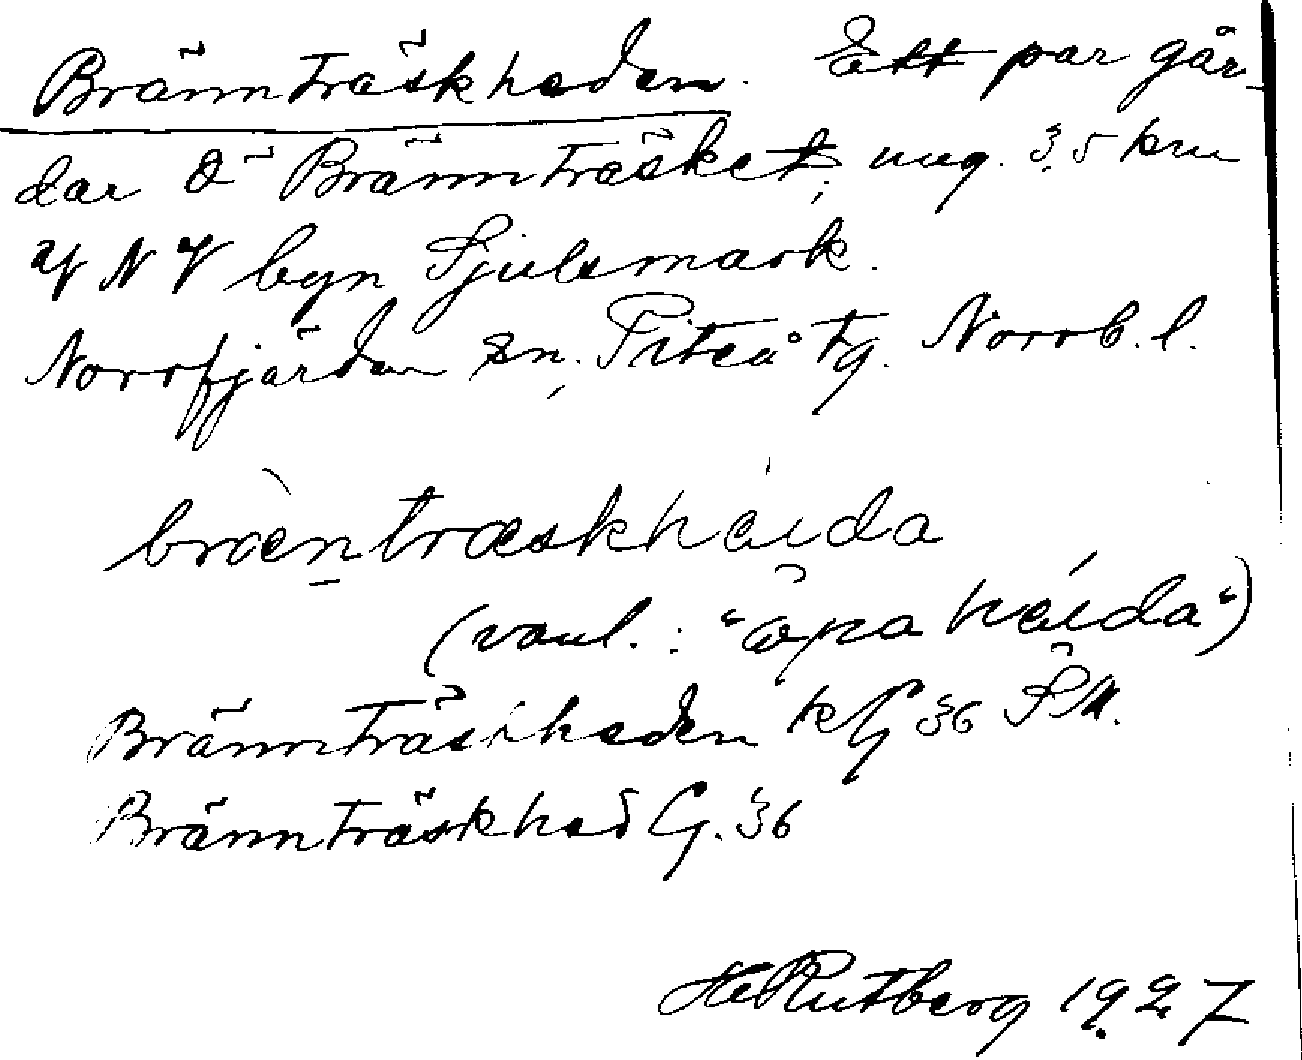 Brännträskheden. Ett par går-
dar Ö Brännträsket, ung. 3,5 km
V N V byn Sjulsmark.
Norrfjärden sn. Piteå tg. Norrb. l.
bræntræskhaida
(vanl.: "åpa haida")
Brännträskheden kG 36 SM.
Brännträskhed G. 36
HeRutberg 1927